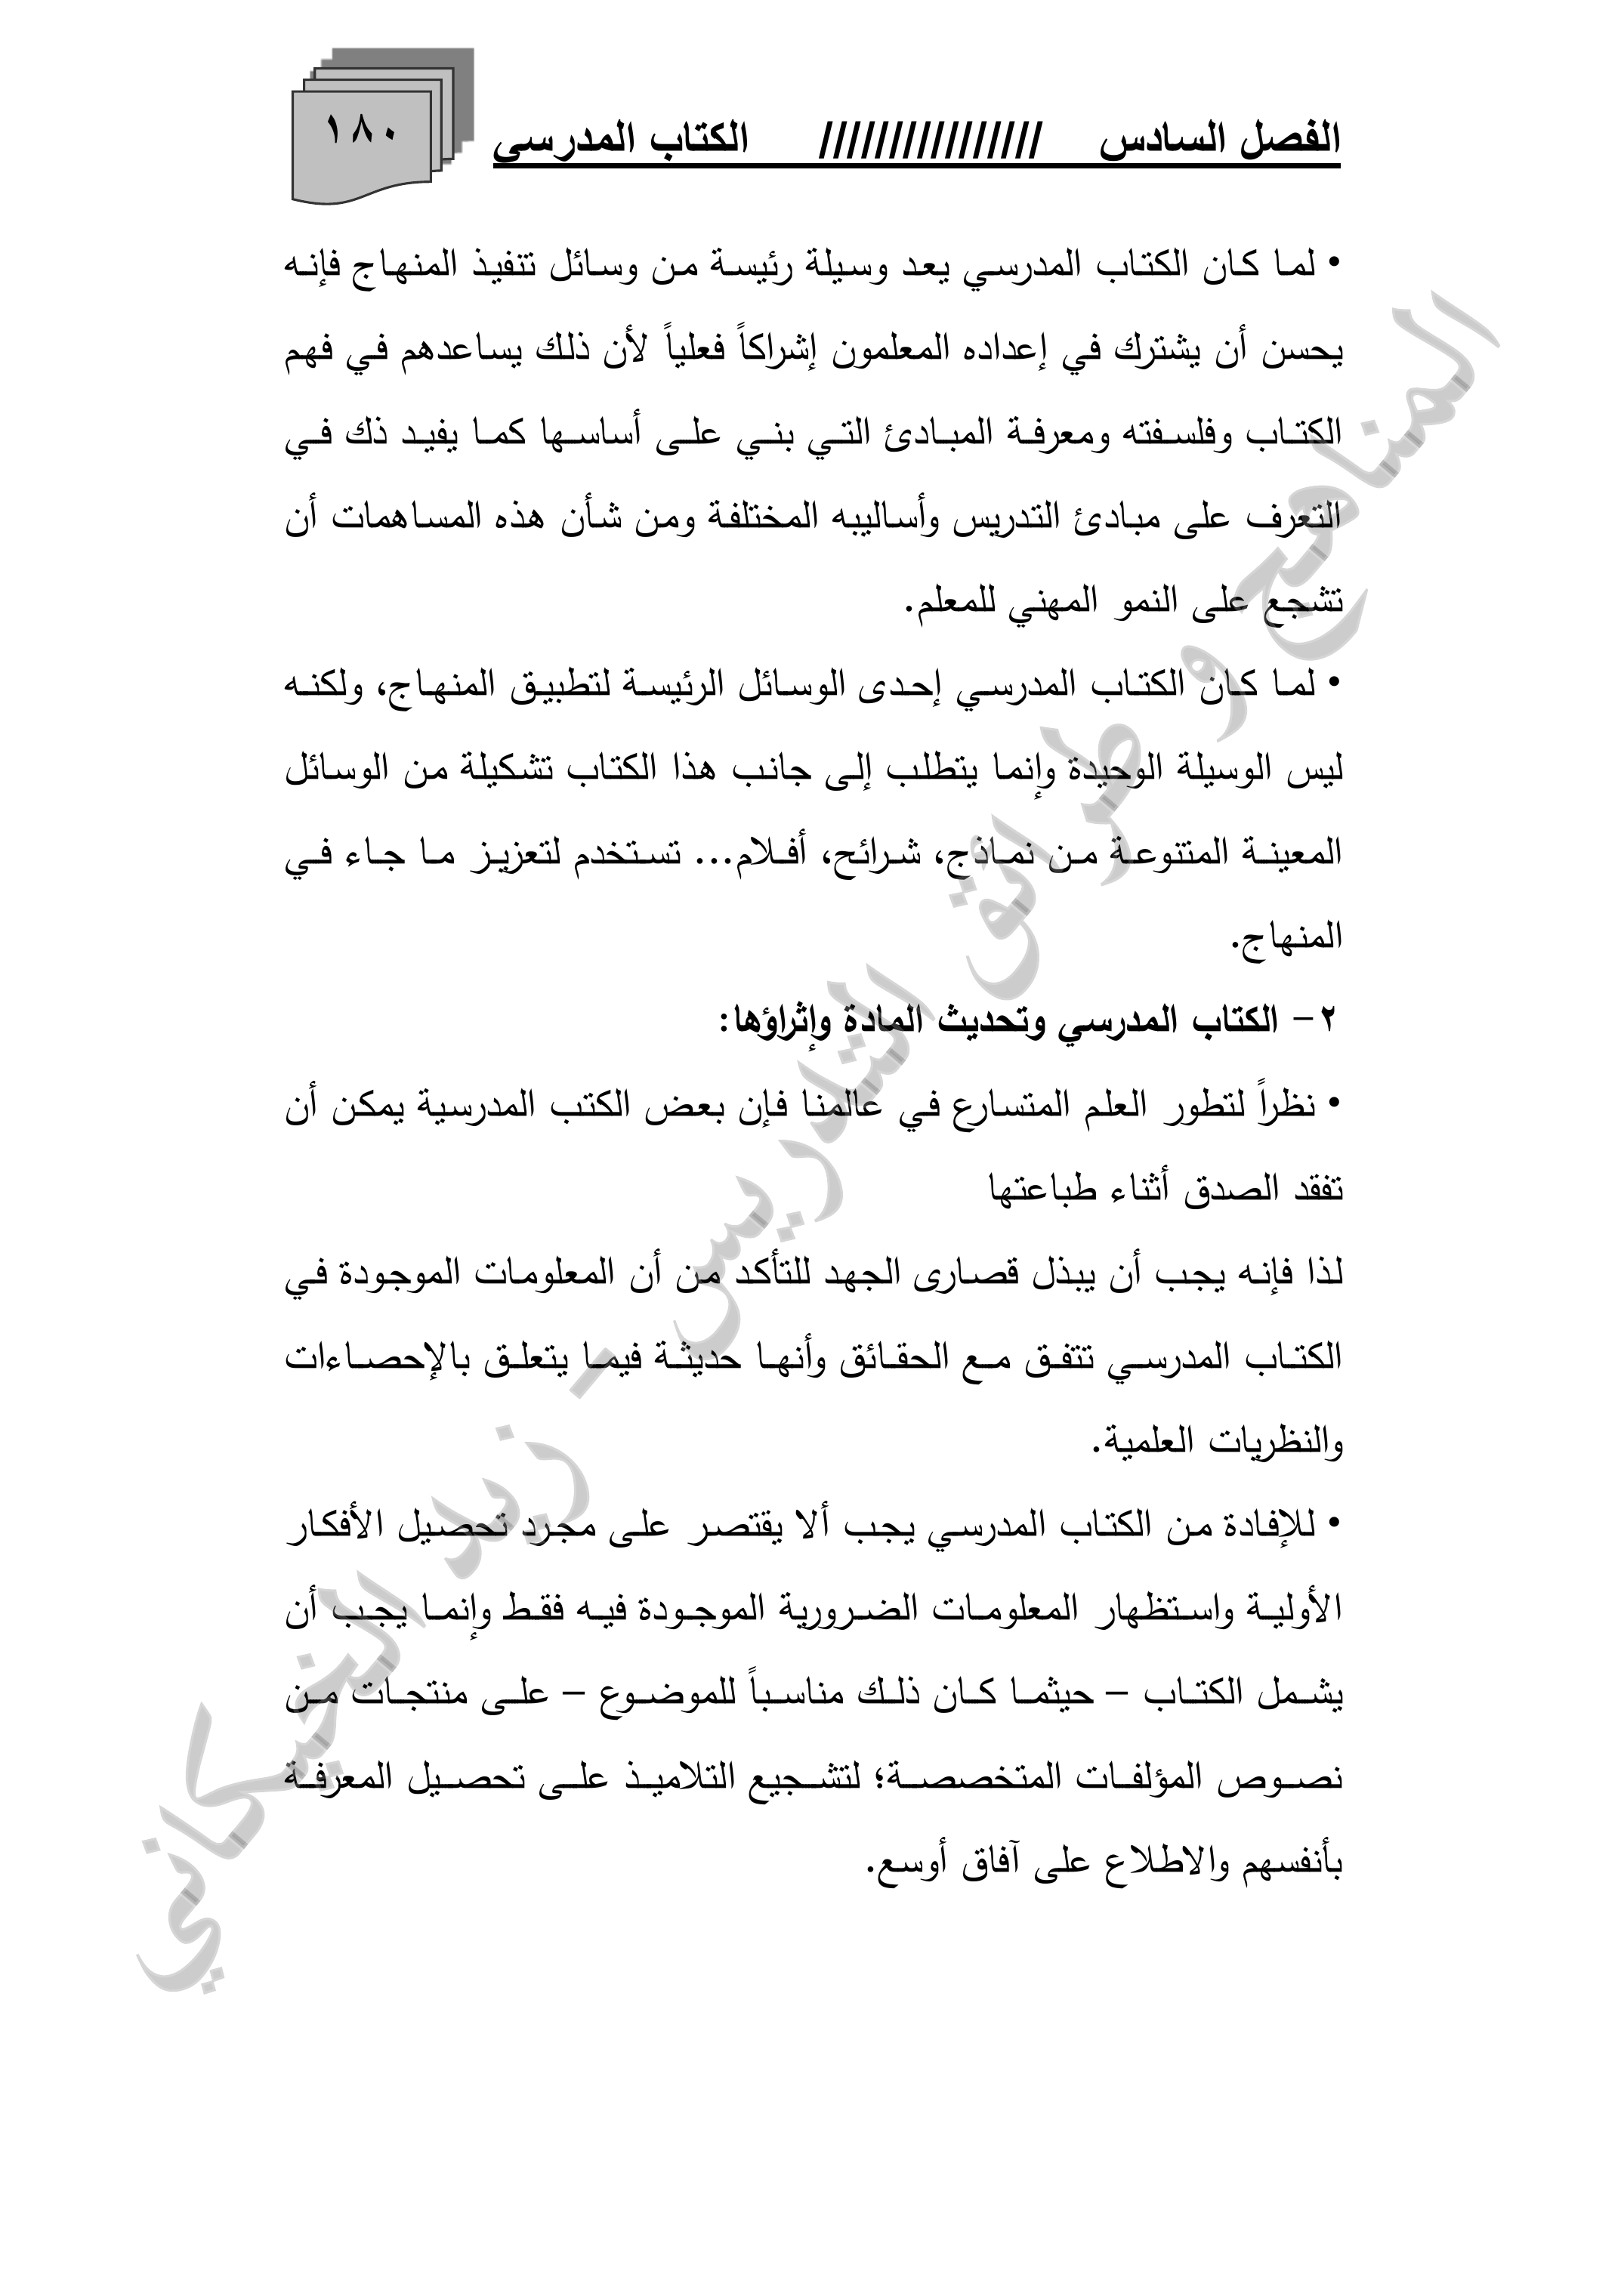 الفصل السادس //////////////// الكتاب المدرسي
١٨٠
• لما كان الكتاب المدرسي يعد وسيلة رئيسة من وسائل تنفيذ المنهاج فإنه
يحسن أن يشترك في إعداده المعلمون إشراكاً فعلياً لأن ذلك يساعدهم في فهم
الكتاب وفلسفته ومعرفة المبادئ التي بني على أساسها كما يفيد ذك في
التعرف على مبادئ التدريس وأساليبه المختلفة ومن شأن هذه المساهمات أن
تشجع على النمو المهني للمعلم.
• لما كان الكتاب المدرسي إحدى الوسائل الرئيسة لتطبيق المنهاج، ولكنه
ليس الوسيلة الوحيدة وإنما يتطلب إلى جانب هذا الكتاب تشكيلة من الوسائل
المعينة المتنوعة من نماذج، شرائح، أفلام... تستخدم لتعزيز ما جاء في
المنهاج.
٢- الكتاب المدرسي وتحديث المادة وإثراؤها:
• نظراً لتطور العلم المتسارع في عالمنا فإن بعض الكتب المدرسية يمكن أن
تفقد الصدق أثناء طباعتها
لذا فإنه يجب أن يبذل قصارى الجهد للتأكد من أن المعلومات الموجودة في
الكتاب المدرسي تتفق مع الحقائق وأنها حديثة فيما يتعلق بالإحصاءات
والنظريات العلمية.
• للإفادة من الكتاب المدرسي يجب ألا يقتصر على مجرد تحصيل الأفكار
الأولية واستظهار المعلومات الضرورية الموجودة فيه فقط وإنما يجب أن
يشمل الكتاب – حيثما كان ذلك مناسباً للموضوع – على منتجات من
نصوص المؤلفات المتخصصة؛ لتشجيع التلاميذ على تحصيل المعرفة
بأنفسهم والاطلاع على آفاق أوسع.
المناهج و طرائق التدريس - زيد الخيكاني